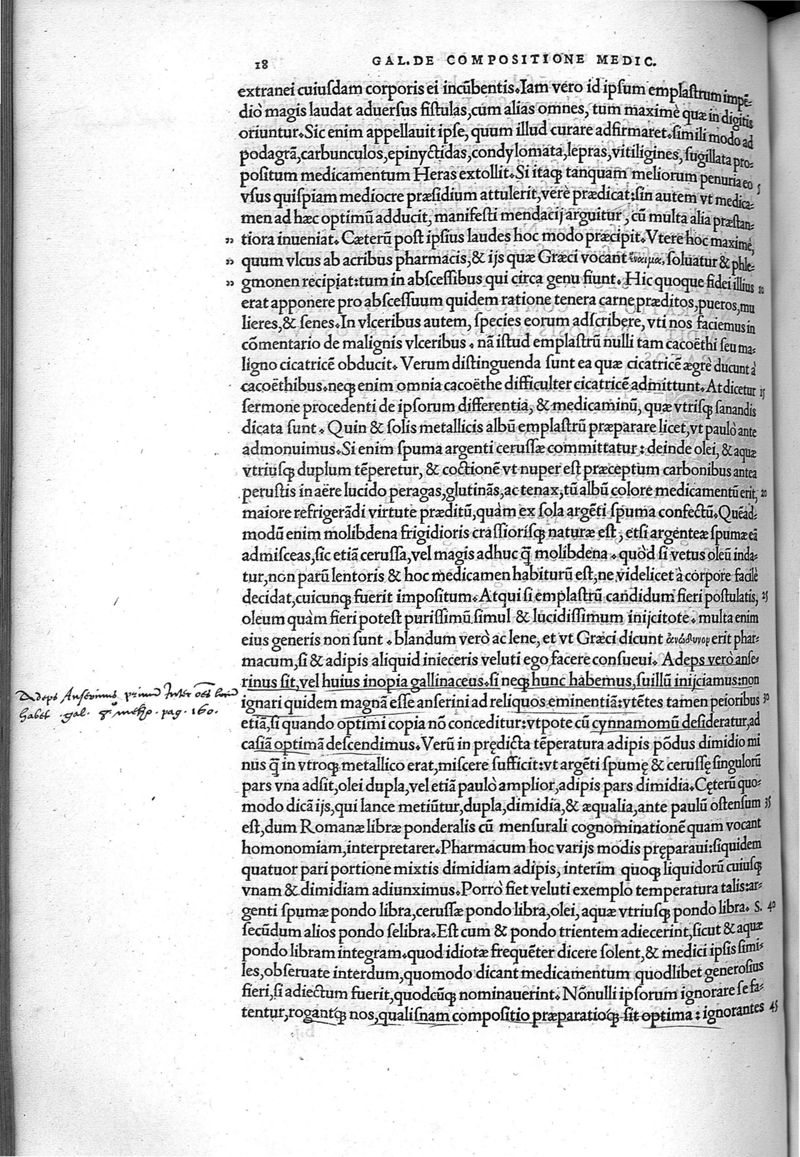 18
GAL. DE COMPOSITIONE MEDIC.
extranei cuiusdam corporis ei incūbentis. Iam vero id ipsum emplastrum impē-
dió magis laudat aduersus fistulas, cum alias omnes, tum maximè quæ in digitis
oriuntur. Sic enim appellauit ipse, quum illud curare adfirmaret. simili modo ad
podagrā, carbunculos, epinyctidas, condylomata, lepras, vitiligines, sugillata pro-
positum medicamentum Heras extollit. Si itaq; tanquam meliorum penuria eo 5
vsus quispiam mediocre præsidium attulerit, verè prædicat: sin autem vt medica-
men ad hæc optimū adducit, manifesti mendacij arguitur, cū multa alia præstan-
„ tiora inueniat. Cæterū post ipsius laudes hoc modo præcipit. Vtere hoc maximè,
„ quum vlcus ab acribus pharmacis, & ijs quæ Græci vocant ἔναιμα, soluatur & phle-
„ gmonen recipiat: tum in abscessibus qui circa genu fiunt. Hic quoque fidei illius 10
erat apponere pro abscessuum quidem ratione tenera carne præditos, pueros, mu
lieres, & senes. In vlceribus autem, species eorum adscribere, vti nos faciemus in
cōmentario de malignis vlceribus. nā istud emplastrū nulli tam cacoëthi seu ma-
ligno cicatricē obducit. Verum distinguenda sunt ea quæ cicatricē ægrè ducunt à
cacoëthibus. neq; enim omnia cacoëthe difficulter cicatricē admittunt. At dicetur 15
sermone procedenti de ipsorum differentia, & medicaminū, quæ vtrisq; sanandis
dicata sunt. Quin & solis metallicis albū emplastrū præparare licet, vt paulò ante
admonuimus. Si enim spuma argenti cerussæ committatur: deinde olei, & aquæ
vtriusq; duplum tēperetur, & coctionē vt nuper est præceptum carbonibus antea
perustis in aëre lucido peragas, glutinās, ac tenax, tū albū colore medicamentū erit, 20
maiore refrigerādi virtute præditū, quàm ex sola argēti spuma confectū. Quēad-
modū enim molibdena frigidioris crassiorisq; naturæ est, etsi argenteæ spumæ eā
admisceas, sic etiā cerussa, vel magis adhuc q̄ molibdena. quòd si vetus oleū inda-
tur, non parū lentoris & hoc medicamen habiturū est, ne videlicet à corpore facilè
decidat, cuicunq; fuerit impositum. Atqui si emplastrū candidum fieri postulatis, 25
oleum quàm fieri potest purissimū simul & lucidissimum inijcitote. multa enim
eius generis non sunt. blandum verò ac lene, et vt Græci dicunt ἀνώδυνον erit phar-
macum, si & adipis aliquid inieceris veluti ego facere consueui. Adeps verò anse-
rinus sit, vel huius inopia gallinaceus. si neq; hunc habemus, suillū inijciamus: non
ignari quidem magnā esse anserini ad reliquos eminentiā: vtētes tamen peioribus 30
etiā, si quando optimi copia nō conceditur: vtpote cū cynnamomū desideratur, ad
casiā optimā descendimus. Verū in prędicta tēperatura adipis pōdus dimidio mi
nus q̄ in vtroq; metallico erat, miscere sufficit: vt argēti spumę & cerussę singulorū
pars vna adsit, olei dupla, vel etiā paulò amplior, adipis pars dimidia. Cęterū quo-
modo dicā ijs, qui lance metiūtur, dupla, dimidia, & æqualia, ante paulū ostensum 35
est, dum Romanæ libræ ponderalis cū mensurali cognominationē quam vocant
homonomiam, interpretarer. Pharmacum hoc varijs modis pręparaui: siquidem
quatuor pari portione mixtis dimidiam adipis, interim quoq; liquidorū cuiusq;
vnam & dimidiam adiunximus. Porrò fiet veluti exemplo temperatura talis: ar-
genti spumæ pondo libra, cerussæ pondo libra, olei, aquæ vtriusq; pondo libra. S. 40
secūdum alios pondo selibra. Est cum & pondo trientem adiecerint, sicut & aquæ
pondo libram integram. quod idiotæ frequēter dicere solent, & medici ipsis simi-
les, obseruate interdum, quomodo dicant medicamentum quodlibet generosius
fieri, si adiectum fuerit, quodcūq; nominauerint. Nōnulli ipsorum ignorare se fa-
tentur, rogantq; nos, qualisnam compositio præparatioq; sit optima: ignorantes 45
Adeps Anserinus primū Inter oēs
habet. gal. pag. 160.